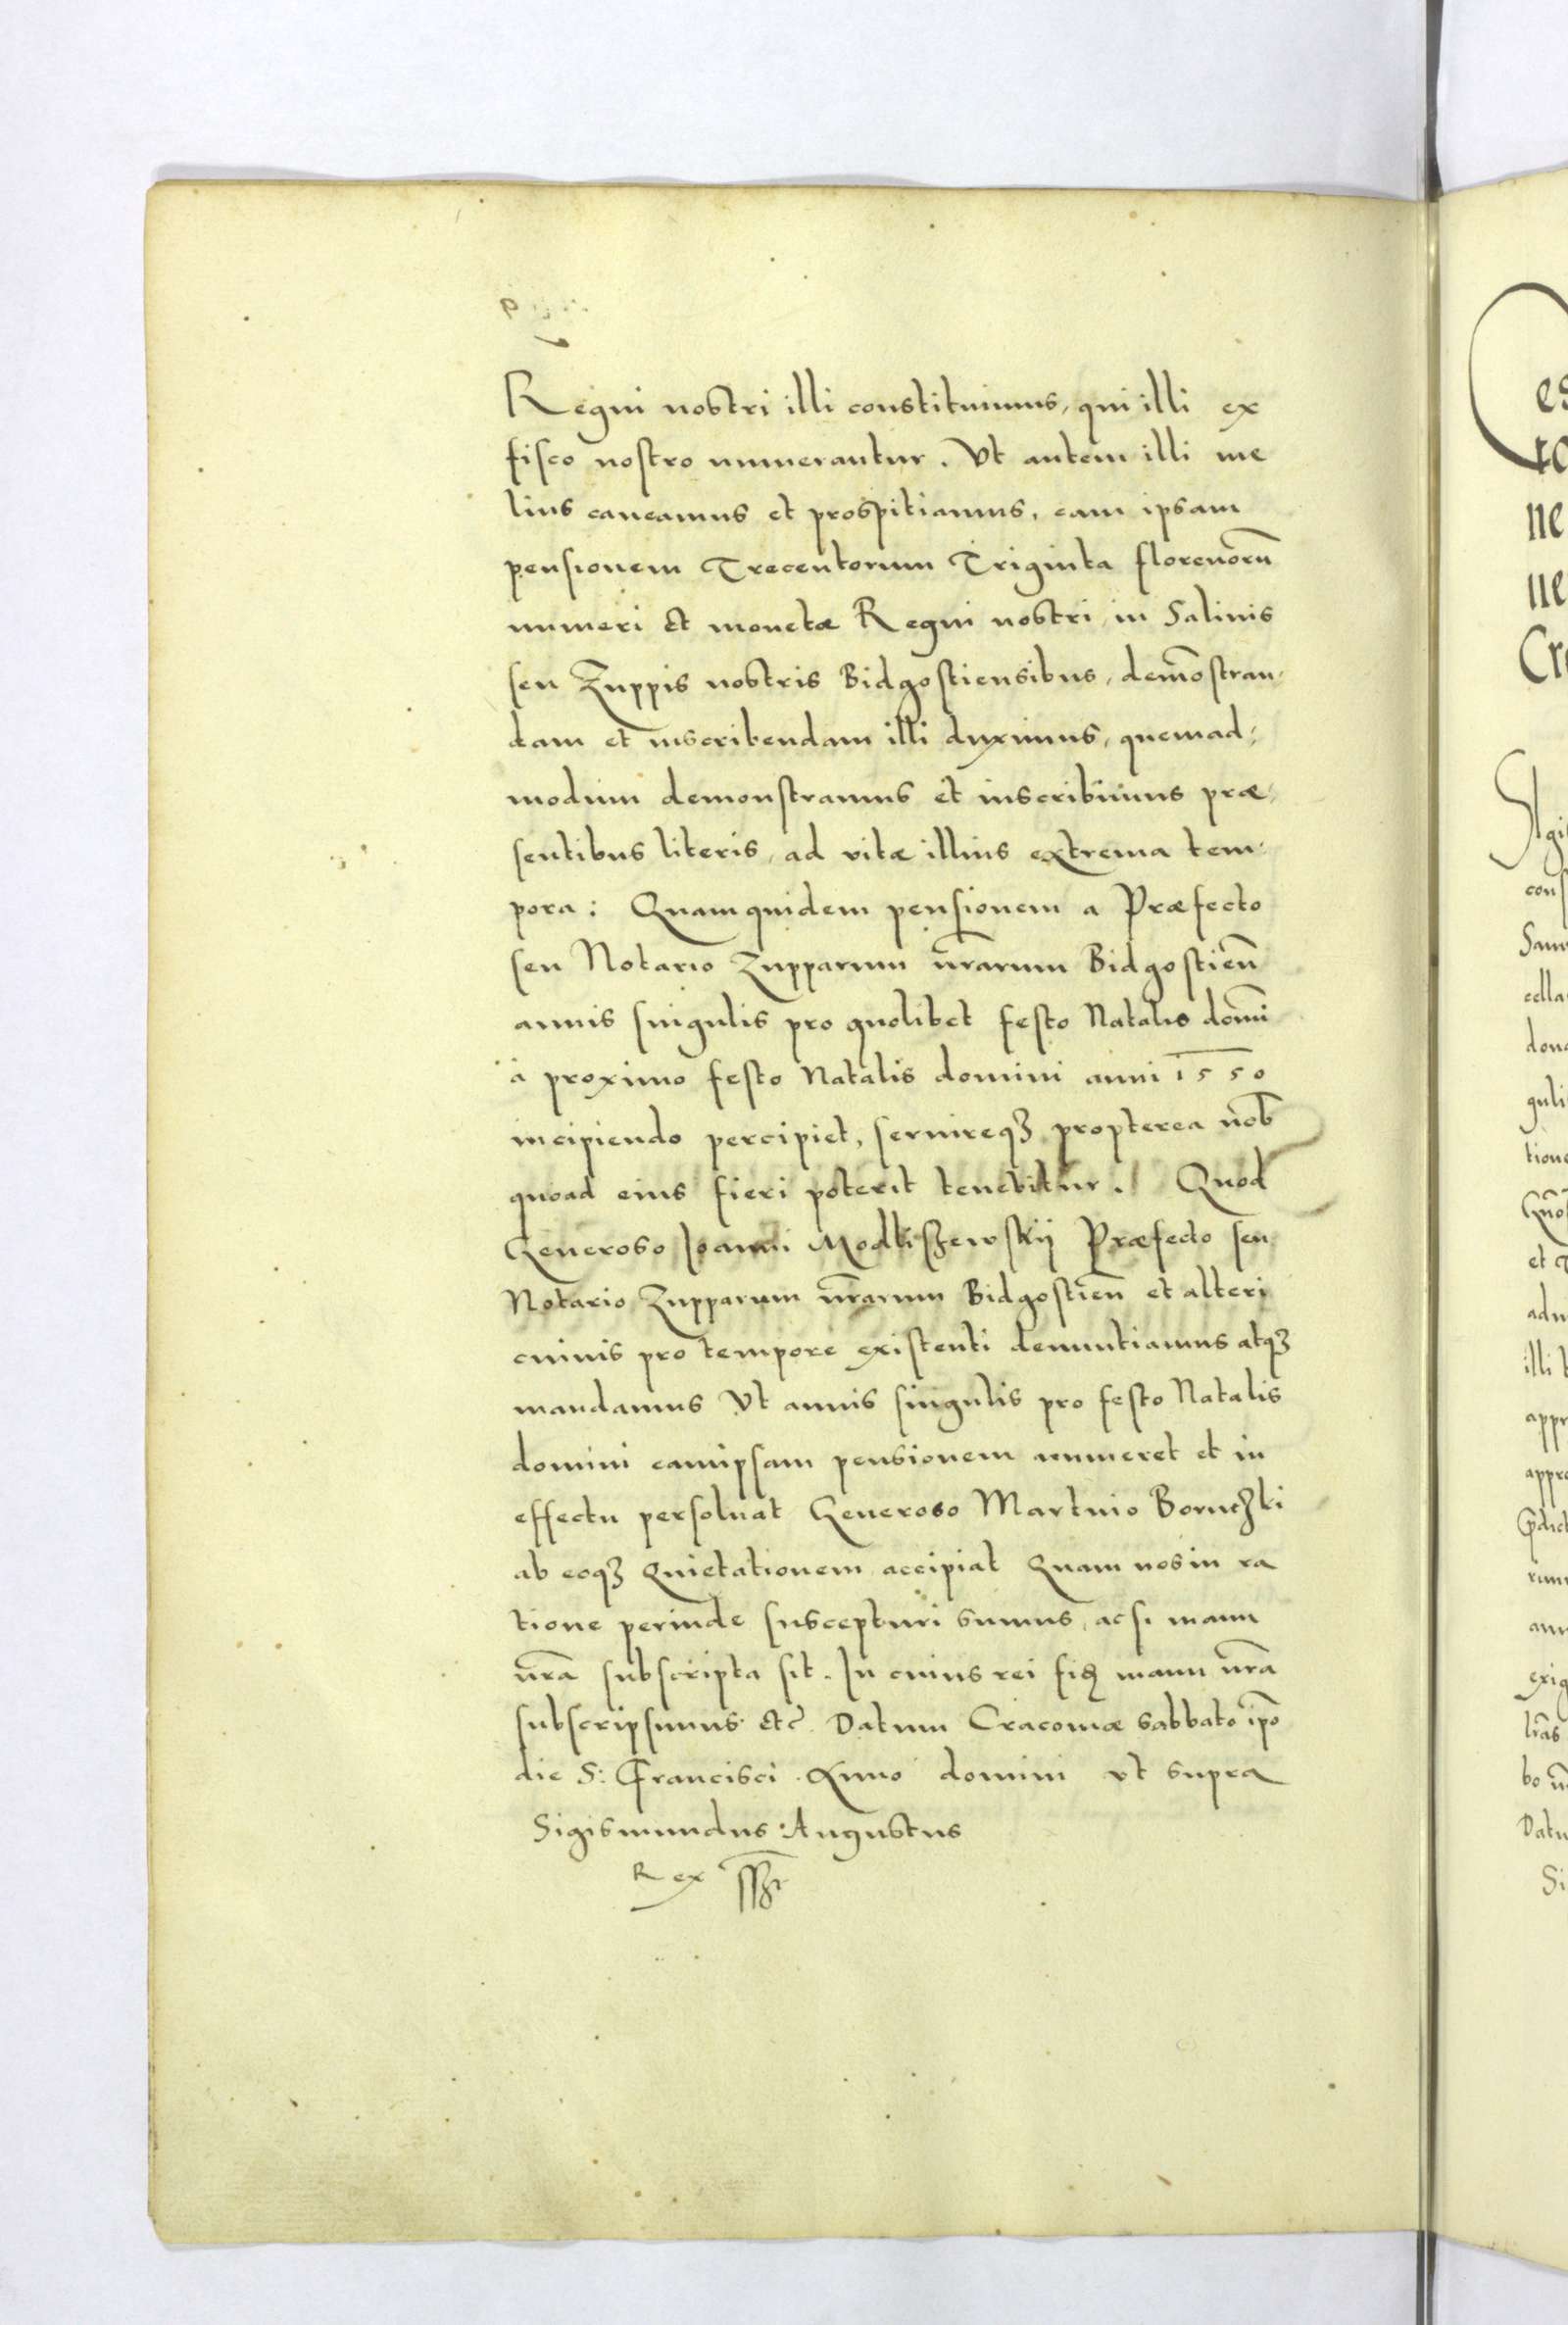 Regni nostri illi constituimus, qui illi ex
fisco nostro numerantur. Vt autem illi me
lius caueamus et prospitiamus, eam ipsam
pensionem Trecentorum Triginta florenorū
numeri et monetæ Regni nostri in Salinis
seu Zuppis nostris Bidgostiensibus, demōstran-
dam et inscribendam illi duximus, quemad-
modum demonstramus et inscribimus præ-
sentibus literis, ad vitæ illius extrema tem-
pora: Quamquidem pensionem a Præfecto
seu Notario Zupparum nr̄arum Bidgostien̄
annis singulis pro quolibet festo Natalis domī
à proximo festo Natalis domini anni 1550
incipiendo percipiet, seruireqꝫ propterea nob̄
quoad eius fieri poterit tenebitur. Quod
Generoso Joanni Modliszewskij Præfecto seu
Notario Zupparum nr̄arum Bidgostien̄ et alteri
cuiuis pro tempore existenti denuntiamus atqꝫ
mandamus Vt annis singulis pro festo Natalis
domini eamipsam pensionem numeret et in
effectu persoluat Generoso Martino
ab eoqꝫ Quietationem accipiat Quam nos in ra
tione perinde suscepturi sumus, ac si manu
nr̄a subscripta sit. In cuius rei fiđ manu nr̄a
subscripsimus etc̄. Datum Cracouiæ sabbato ip̄o
die S: Francisci. Anno domini vt supra
Sigismundus Augustus
Rex
es
ne
ne
Sigi
cons
cella
guli
illi
Datu
Si